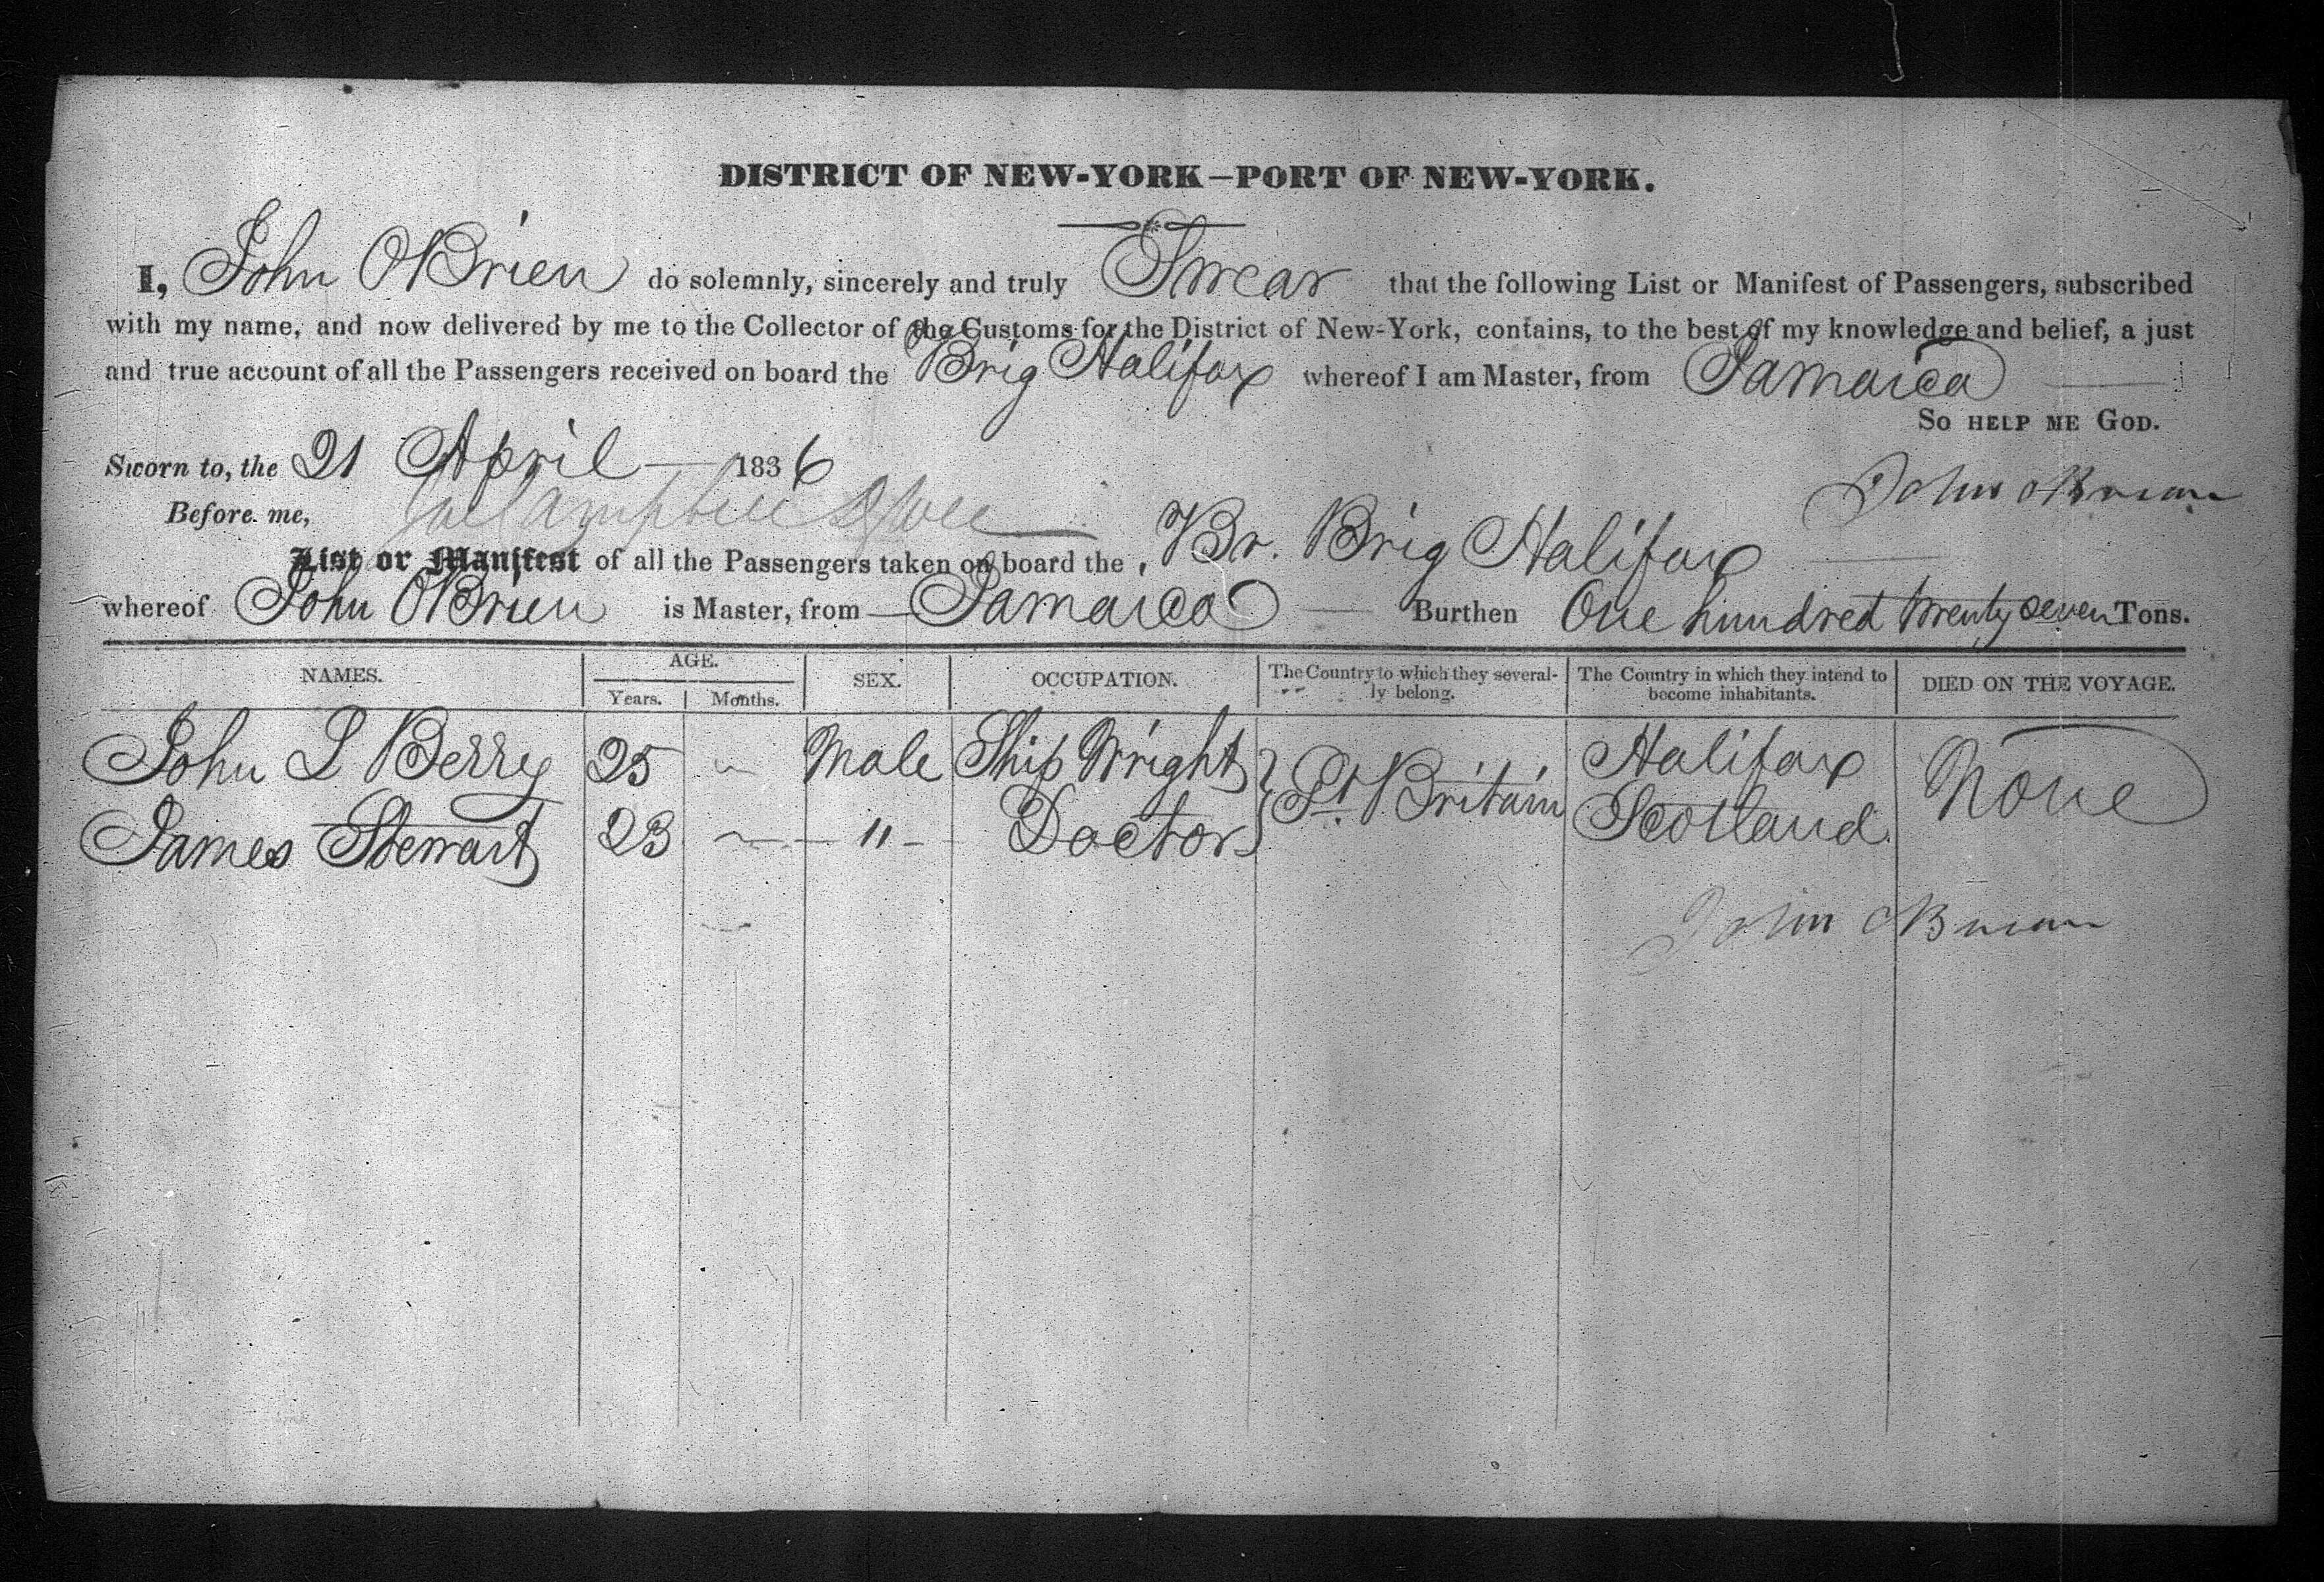 DISTRICT OF NEW-YORK—PORT OF NEW-YORK.
I, John OBrien do solemnly, sincerely and truly Swear that the following List or Manifest of Passengers, subscribed
with my name, and now delivered by me to the Collector of the Customs for the District of New-York, contains, to the best of my knowledge and belief, a just
and true account of all the Passengers received on board the Brig Halifax whereof I am Master, from Jamaica
SO HELP ME GOD.
Sworn to, the 21 April 1836
John OBrien
Before me,
List or Manifest of all the Passengers taken on board the Br. Brig Halifax
whereof John OBrien is Master, from Jamaica Burthen One hundred twenty seven Tons.
NAMES. AGE. SEX. OCCUPATION. The Country to which they several- The Country in which they intend to DIED ON THE VOYAGE.
Years. Months. ly belong. become inhabitants.
John L Berry 25 Male Ship Wright Gt. Britain Halifax None
James Stewart 23 " Doctor Scotland
John OBrien